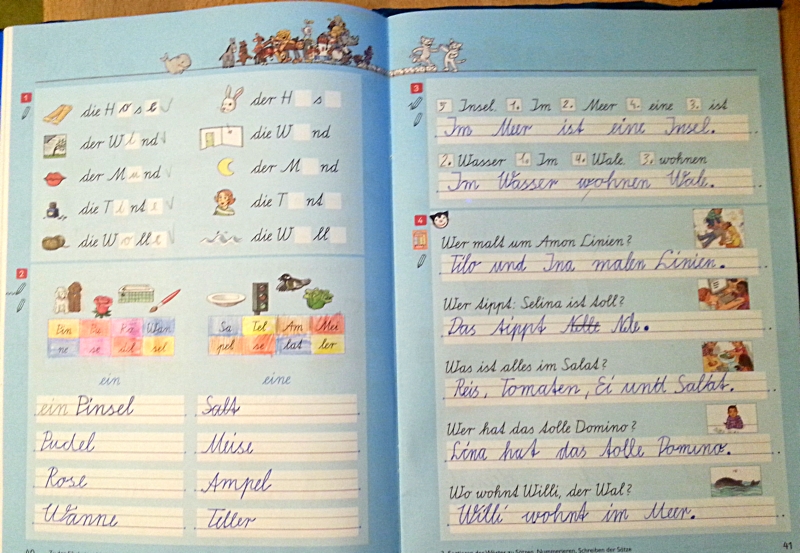 1
die Hose
der H s
der Wind
die W nd
der Mund
der M nd
die Tinte
die T nt
die Wolle
die W ll
2
Pin Wan
ne se sel
Sa Tel Am Mei
pel se lat ler
ein
eine
ein Pinsel
Salt
Pudel
Meise
Rose
Ampel
Wanne
Teller
40
3
5. Insel. 1. Im 2. Meer 4. eine 3. ist
Im Meer ist eine Insel.
2. Wasser 1. Im 4. Wale. 3. wohnen
Im Wasser wohnen Wale.
4
Wer malt um Amon Linien?
Tilo und Ina malen Linien.
Wer tippt: Selina ist toll?
Das tippt Nelle Nele.
Was ist alles im Salat?
Reis, Tomaten, Ei und Salat.
Wer hat das tolle Domino?
Lina hat das tolle Domino.
Wo wohnt Willi, der Wal?
Willi wohnt im Meer.
Wörter zu Sätzen, Nummerieren, Schreiben der Sätze
41